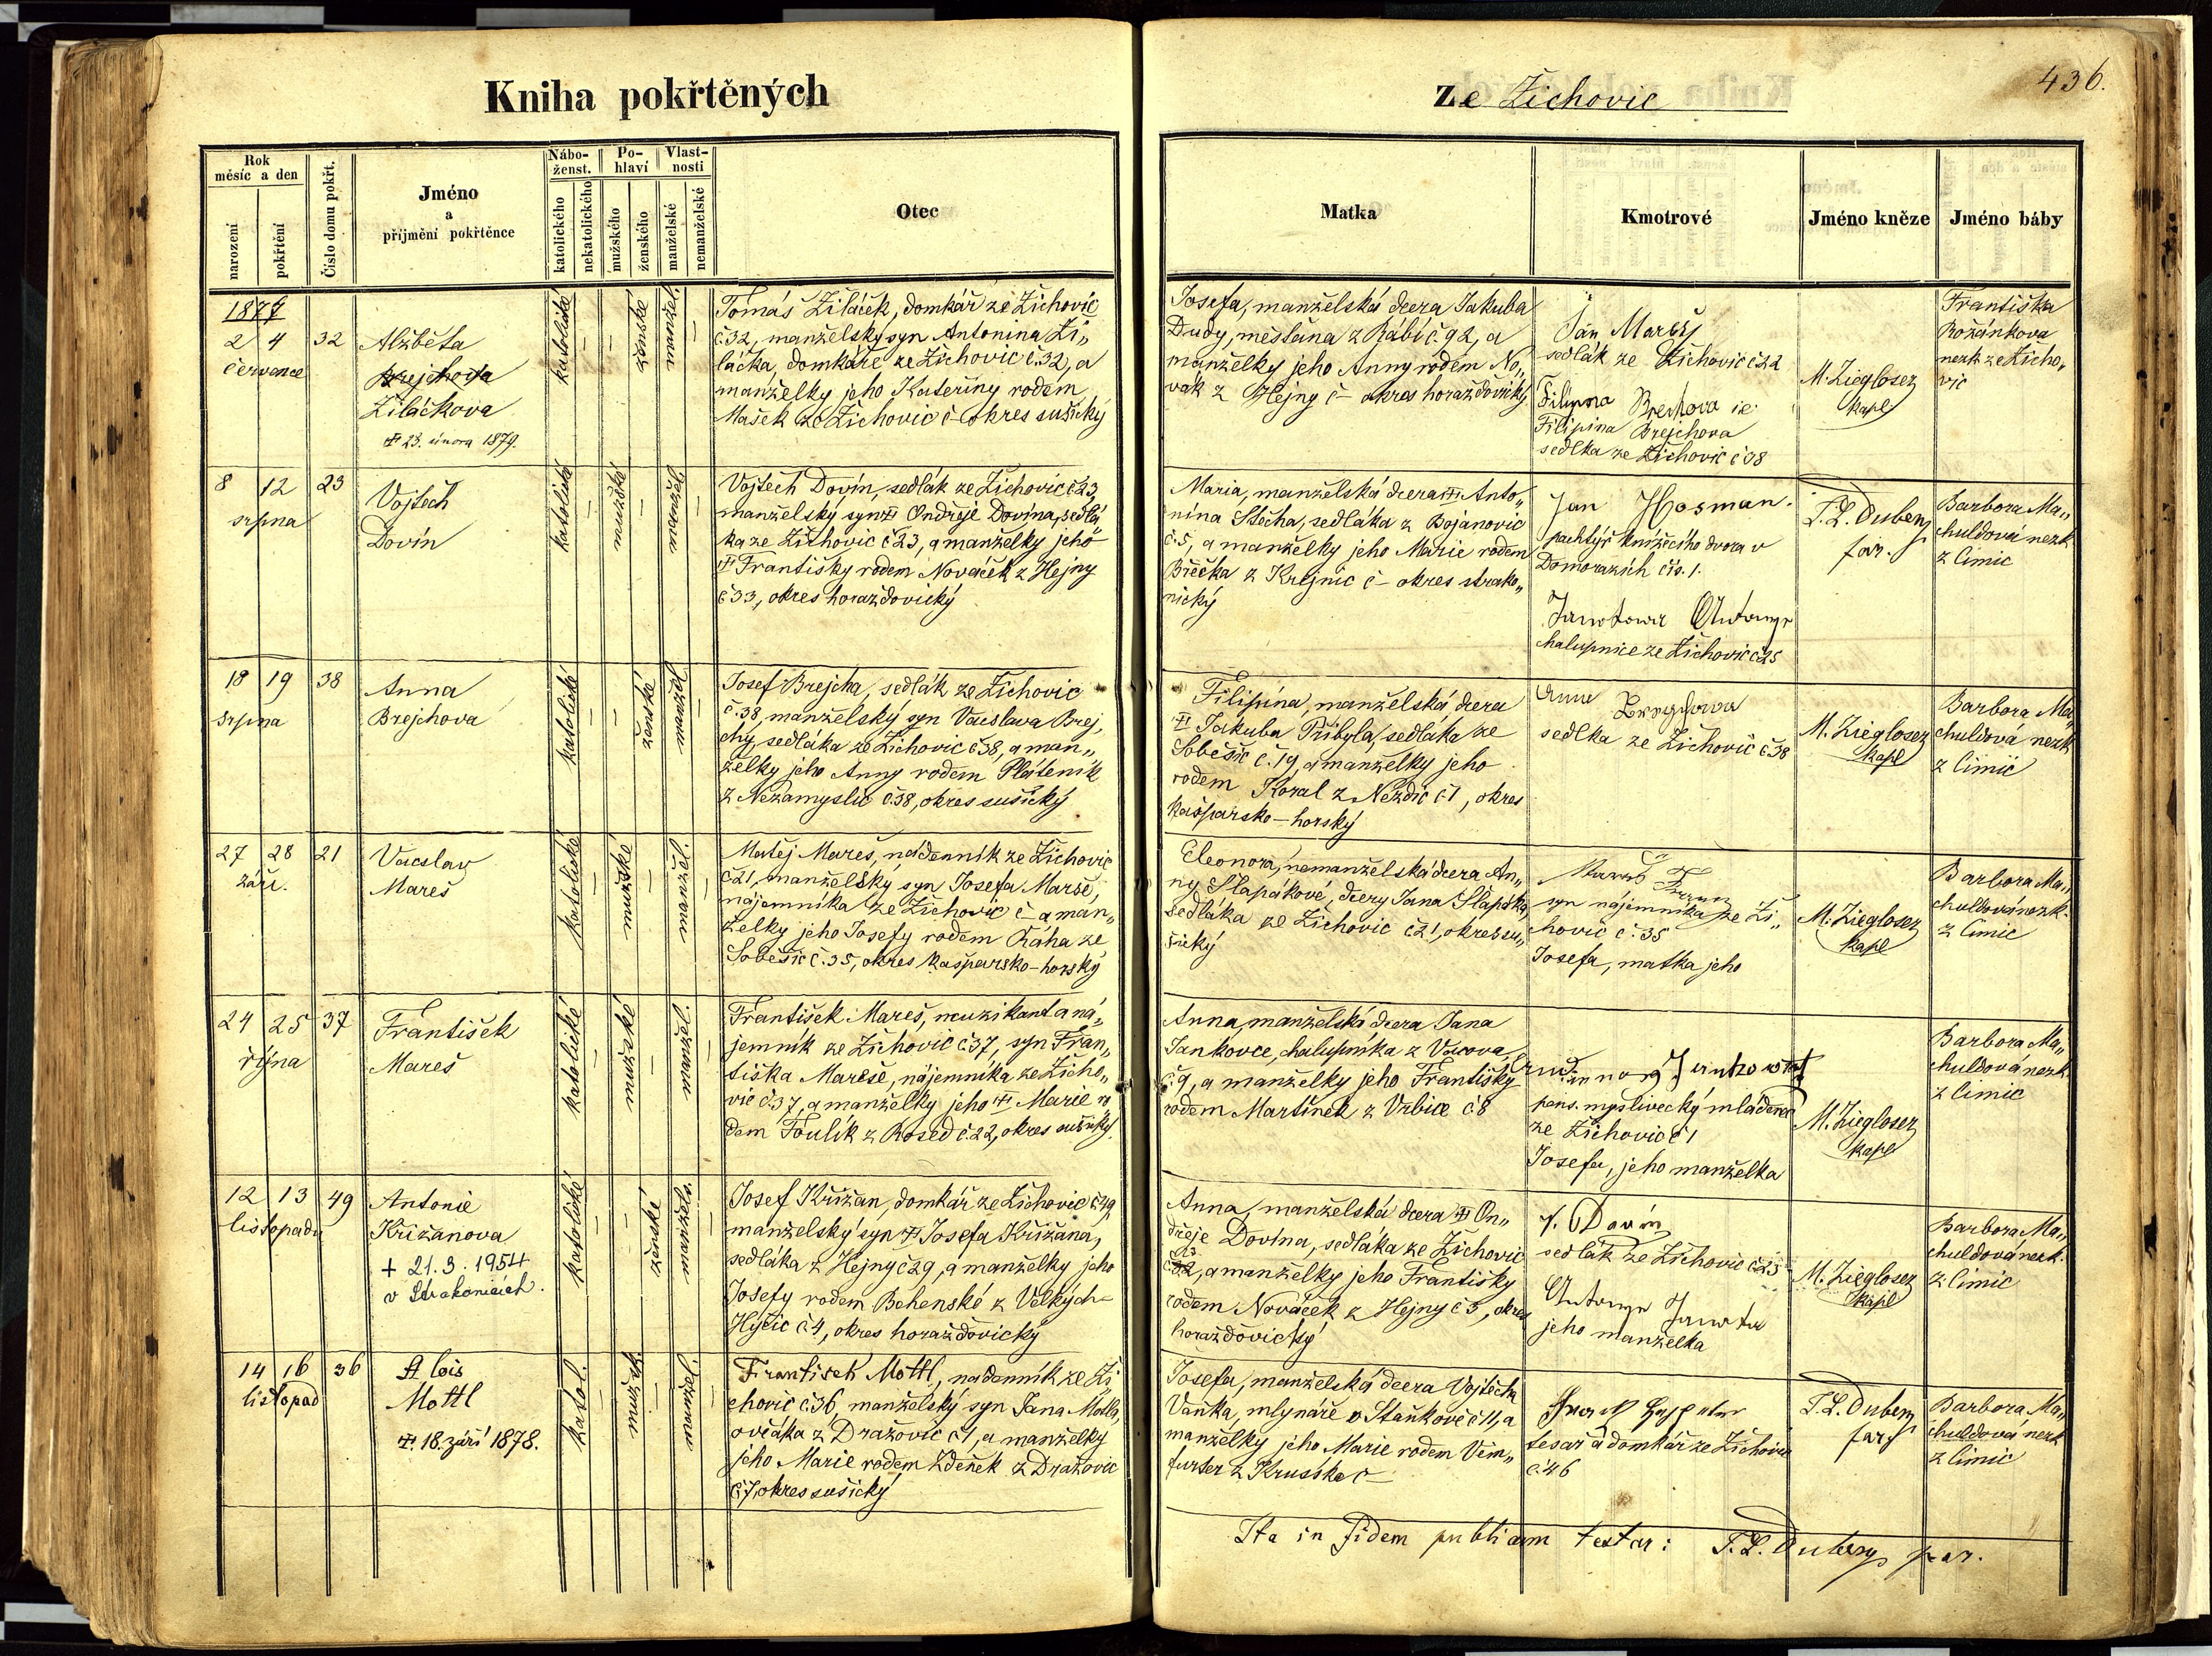 Kniha pokřtěných
Rok
měsíc a den
narození
pokřtění
Číslo domu pokřt.
Jméno
a
příjmění pokřtěnce
Nábo-
ženst.
katolického
nekatolického
Po-
hlaví
mužského
ženského
Vlast-
nosti
manželské
nemanželské
Otec
1877
2 4 32
července
Alžběta
Brejchova
Žiláčkova
23. února 1879.
katolické
ženské
Tomáš Žiláček, domkář ze Žichovic
č. 32, manželský syn Antonína Ži„
láčka, domkáře ze Žichovic č. 32, a
manželky jeho Kateřiny rodem
Mašek ze Žichovic č – okres sušický
8 12 23
srpna
Vojtěch
Dovín
katolické
mužské
Vojtěch Dovín, sedlák ze Žichovic č 23,
manželský syn Ondřeje Dovína, sedlá
ka ze Žichovic č 23, a manželky jeho
Františky rodem Nováček z Hejny
č 33, okres horažďovický
18 19 38
srpna
Anna
Brejchova
katolické
ženské
Josef Brejcha, sedlák ze Žichovic
č. 38, manželský syn Vácslava Brej„
chy, sedláka ze Žichovic č 38, a man„
želky jeho Anny rodem Pláteník
z Nezamyslic č. 38, okres sušický
27 28 21
září.
Vácslav
Mareš
katolické
mužské
Matěj Mareš, nádenník ze Žichovic
č 21, manželský syn Josefa Mareše,
nájemníka ze Žichovic č – a man„
želky jeho Josefy rodem Káha ze
Soběšic č. 35, okres kašparsko-horský
24 25 37
října
František
Mareš
katolické
mužské
František Mareš, muzikant a ná„
jemník ze Žichovic č 37, syn Fran„
tiška Mareše, nájemníka ze Žicho„
vic č 37, a manželky jeho Marie ro
dem Foulík z Rosed č. 22, okres sušický.
12 13 49
listopadu
Antonie
Křižanova
+ 21. 3. 1954
v Strakonicích.
katolické
ženské
Josef Křižan, domkář ze Žichovic č 49
manželský syn Josefa Křižana,
sedláka z Hejny č 29, a manželky jeho
Josefy rodem Behenské z Velkých
Hyčic č. 4, okres horažďovický
14 16 36
listopad
Alois
Mottl
18. září 1878.
katol.
mužsk.
František Mottl, nádenník ze Ži
chovic č. 36, manželský syn Jana Mottla,
ovčáka z Dražovic č 1, a manželky
jeho Marie rodem Zdeněk z Dražovic
č 7, okres sušický
ze Žichovic
436.
Matka
Kmotrové
Jméno kněze
Jméno báby
Josefa, manželská dcera Jakuba
Dudy, měšťana z Rábí č. 92, a
manželky jeho Anny rodem No„
vák z Hejny č – okres horažďovický
Jan
sedlák ze Žichovic č 22
Filipina Brejchova
sedlka ze Žichovic č 38
M. Zieglosez
kapl
Františka
Božánkova
nezk. ze Žicho„
vic
Maria, manželská dcera Anto„
nína Stocha, sedláka z Bojanovic
č. 5, a manželky jeho Marie rodem
Břečka z Krejnic č – okres strako„
nický
Jan Hosman
pachtýř knížecího dvora v
Domorazích čís. 1.
chalupnice ze Žichovic č 25
F. L. Dubeny
far.
Barbora Ma„
chuldová nezk.
z Čimic
Filipína, manželská dcera
Jakuba Přibyla, sedláka ze
Soběšic č. 19, a manželky jeho
rodem Koral z Nezdic č 1, okres
kašparsko-horský
sedlka ze Žichovic č. 38
M. Zieglosez
kapl
Barbora Ma„
chuldová nezk
z Čimic
Eleonora, nemanželská dcera An„
ny Šlapákové, dcery Jana Šlapáka,
sedláka ze Žichovic č 21, okres su„
šický
syn nájemníka ze Ži„
chovic č. 35
Josefa, matka jeho
M. Zieglosez
kapl
Barbora Ma„
chuldová nezk.
z Čimic
Anna, manželská dcera Jana
Jankovce, chalupníka z Vacova
č. 9, a manželky jeho Františky
rodem Martínek z Vrbice č 8
pens. myslivecký mládenec
ze Žichovic č 1
Josefa, jeho manželka
M. Zieglosez
kapl
Barbora Ma„
chuldová nezk.
z Čimic
Anna, manželská dcera On„
dřeje Dovína, sedláka ze Žichovic
a manželky jeho Františky
rodem Nováček z Hejny č 5, okres
horažďovický
V. Dovín
sedlák ze Žichovic č 23
jeho manželka
M. Zieglosez
kapl
Barbora Ma„
chuldová nezk.
z Čimic
Josefa, manželská dcera Vojtěcha
Vaňka, mlynáře v Staňkově č 11, a
manželky jeho Marie rodem Vém„
furter z Krusska č –
tesař a domkář ze Žichovic
č. 46
F. L. Dubeny
far.
Barbora Ma„
chuldová nezk
z Čimic
Ita in fidem publicam testor: F. L. Dubeny par.